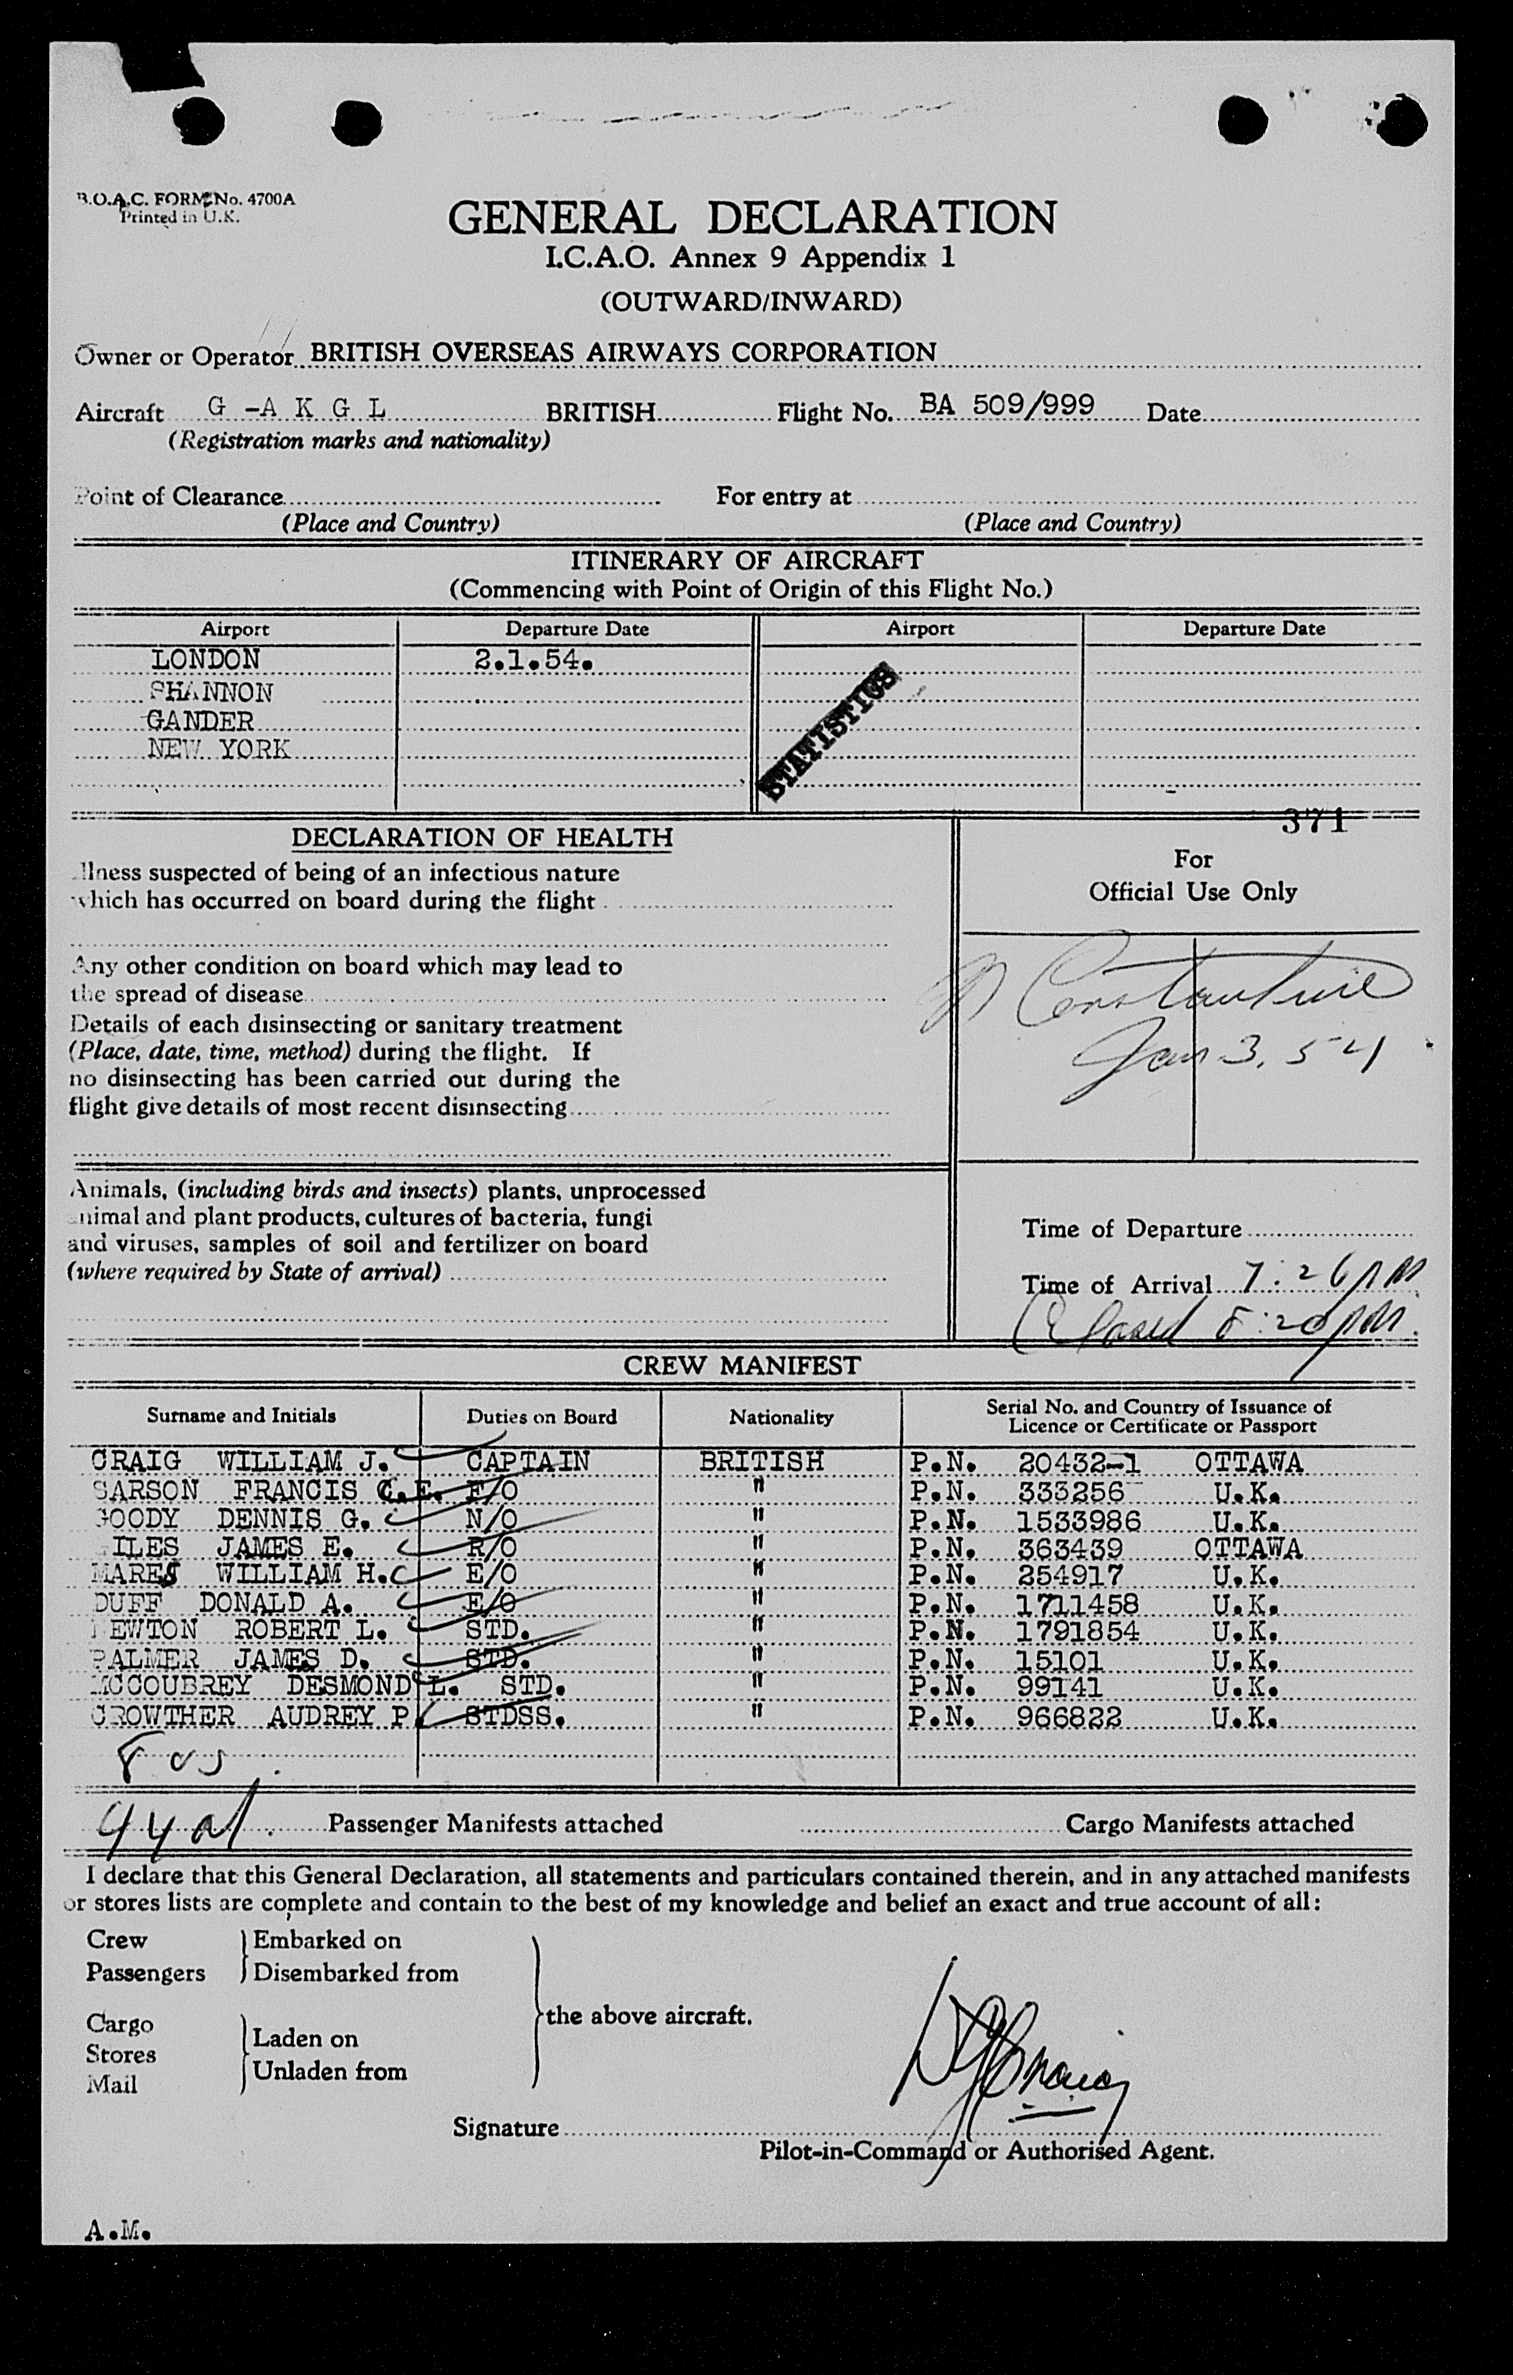 B.O.A.C. FORM No. 4700A
Printed in U.K.
GENERAL DECLARATION
I.C.A.O. Annex 9 Appendix 1
(OUTWARD/INWARD)
Owner or Operator BRITISH OVERSEAS AIRWAYS CORPORATION
Aircraft G -A K G L BRITISH Flight No. BA 509/999 Date
(Registration marks and nationality)
Point of Clearance For entry at
(Place and Country) (Place and Country)
ITINERARY OF AIRCRAFT
(Commencing with Point of Origin of this Flight No.)
Airport Departure Date Airport Departure Date
LONDON 2.1.54.
SHANNON
GANDER
NEW YORK
STATISTICS
371
DECLARATION OF HEALTH
Illness suspected of being of an infectious nature
which has occurred on board during the flight
Any other condition on board which may lead to
the spread of disease
Details of each disinsecting or sanitary treatment
(Place, date, time, method) during the flight. If
no disinsecting has been carried out during the
flight give details of most recent disinsecting
For
Official Use Only
Constantine
Jan 3, 54
Animals, (including birds and insects) plants, unprocessed
animal and plant products, cultures of bacteria, fungi
and viruses, samples of soil and fertilizer on board
(where required by State of arrival)
Time of Departure
Time of Arrival 7:26 PM
Closed 8:20 PM.
CREW MANIFEST
Surname and Initials Duties on Board Nationality Serial No. and Country of Issuance of Licence or Certificate or Passport
CRAIG WILLIAM J. CAPTAIN BRITISH P.N. 20432-1 OTTAWA
SARSON FRANCIS C.E. F/O " P.N. 333256 U.K.
GOODY DENNIS G. N/O " P.N. 1533986 U.K.
GILES JAMES E. R/O " P.N. 363439 OTTAWA
MARES WILLIAM H. E/O " P.N. 254917 U.K.
DUFF DONALD A. E/O " P.N. 1711458 U.K.
NEWTON ROBERT L. STD. " P.N. 1791854 U.K.
PALMER JAMES D. STD. " P.N. 15101 U.K.
MCCOUBREY DESMOND L. STD. " P.N. 99141 U.K.
CROWTHER AUDREY P. STDSS. " P.N. 966822 U.K.
Passenger Manifests attached Cargo Manifests attached
I declare that this General Declaration, all statements and particulars contained therein, and in any attached manifests
or stores lists are complete and contain to the best of my knowledge and belief an exact and true account of all:
Crew Embarked on
Passengers Disembarked from
the above aircraft.
Cargo
Stores Laden on
Mail Unladen from
Signature
Pilot-in-Command or Authorised Agent.
A.M.